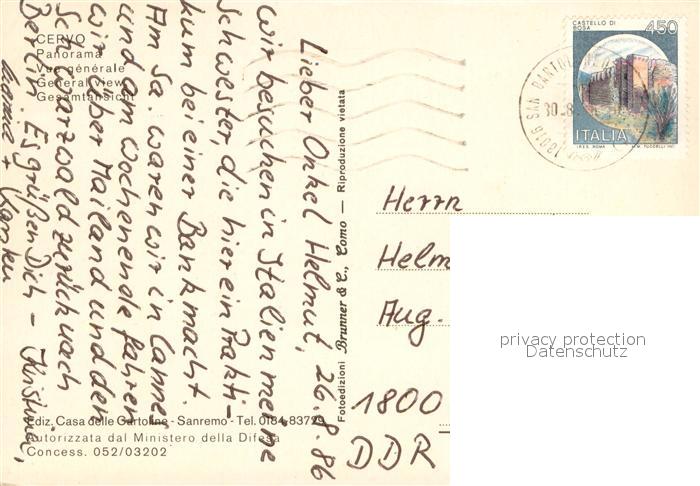 CERVO
Panorama
Vue générale
General view
Gesamtansicht
Lieber Onkel Helmut, 26.8.86
wir besuchen in Italien meine
Schwester, die hier ein Prakti-
kum bei einer Bank macht.
Am Sa. waren wir in Cannes
und am Wochenende fahren
wir über Mailand und den
Schwarzwald zurück nach
Berlin. Es grüßen Dich - Kirstine,
+ Karsten
Ediz. Casa delle Cartoline - Sanremo - Tel. 0184-83729
Autorizzata dal Ministero della Difesa
Concess. 052/03202
Fotoedizioni Brunner & C., Como — Riproduzione vietata
CASTELLO DI
BOSA
450
ITALIA
I.P.S. ROMA
18016 SAN BARTOL
30.8
Herrn
Helm
Aug.
1800
DDR
privacy protection
Datenschutz